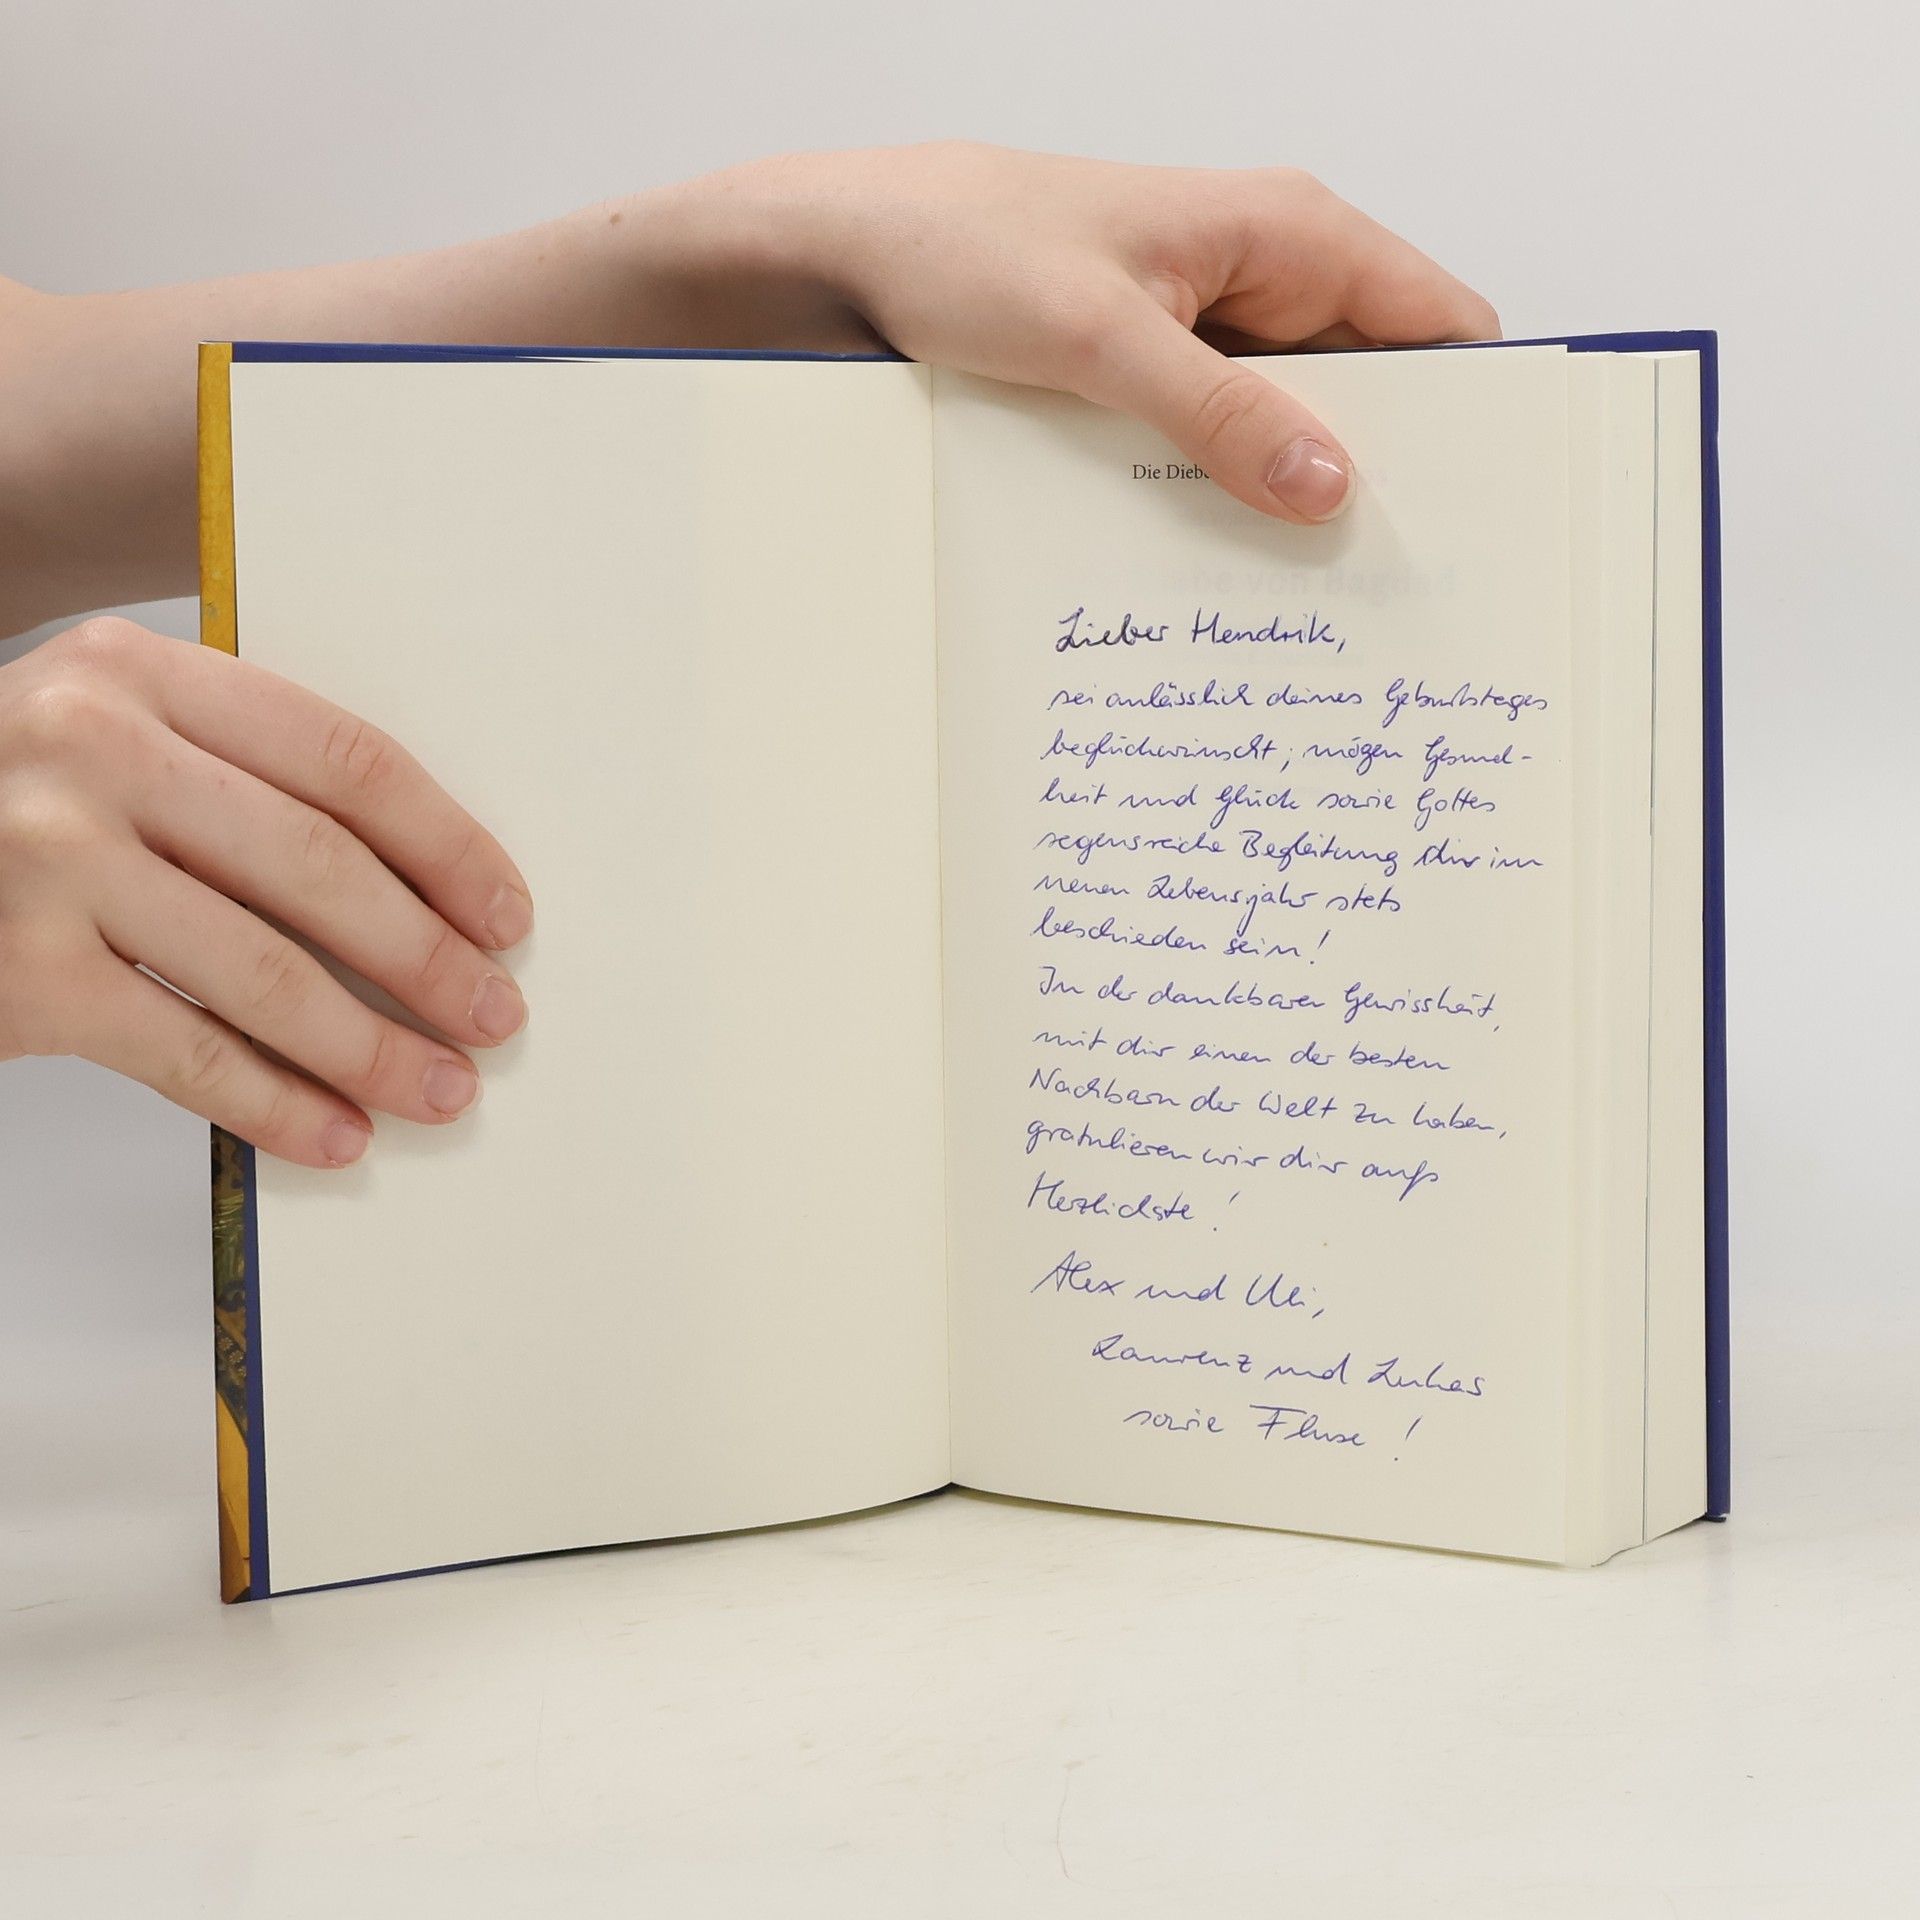 Die Diebe
be von Bagdad
Lieber Hendrik,
sei anlässlich deines Geburtstages
beglückwünscht; mögen Gesund-
heit und Glück sowie Gottes
segensreiche Begleitung dir im
neuen Lebensjahr stets
beschieden sein!
In der dankbaren Gewissheit,
mit dir einen der besten
Nachbarn der Welt zu haben,
gratulieren wir dir aufs
Herzlichste!
Alex und Uli,
Laurenz und Lukas
sowie Fluse!